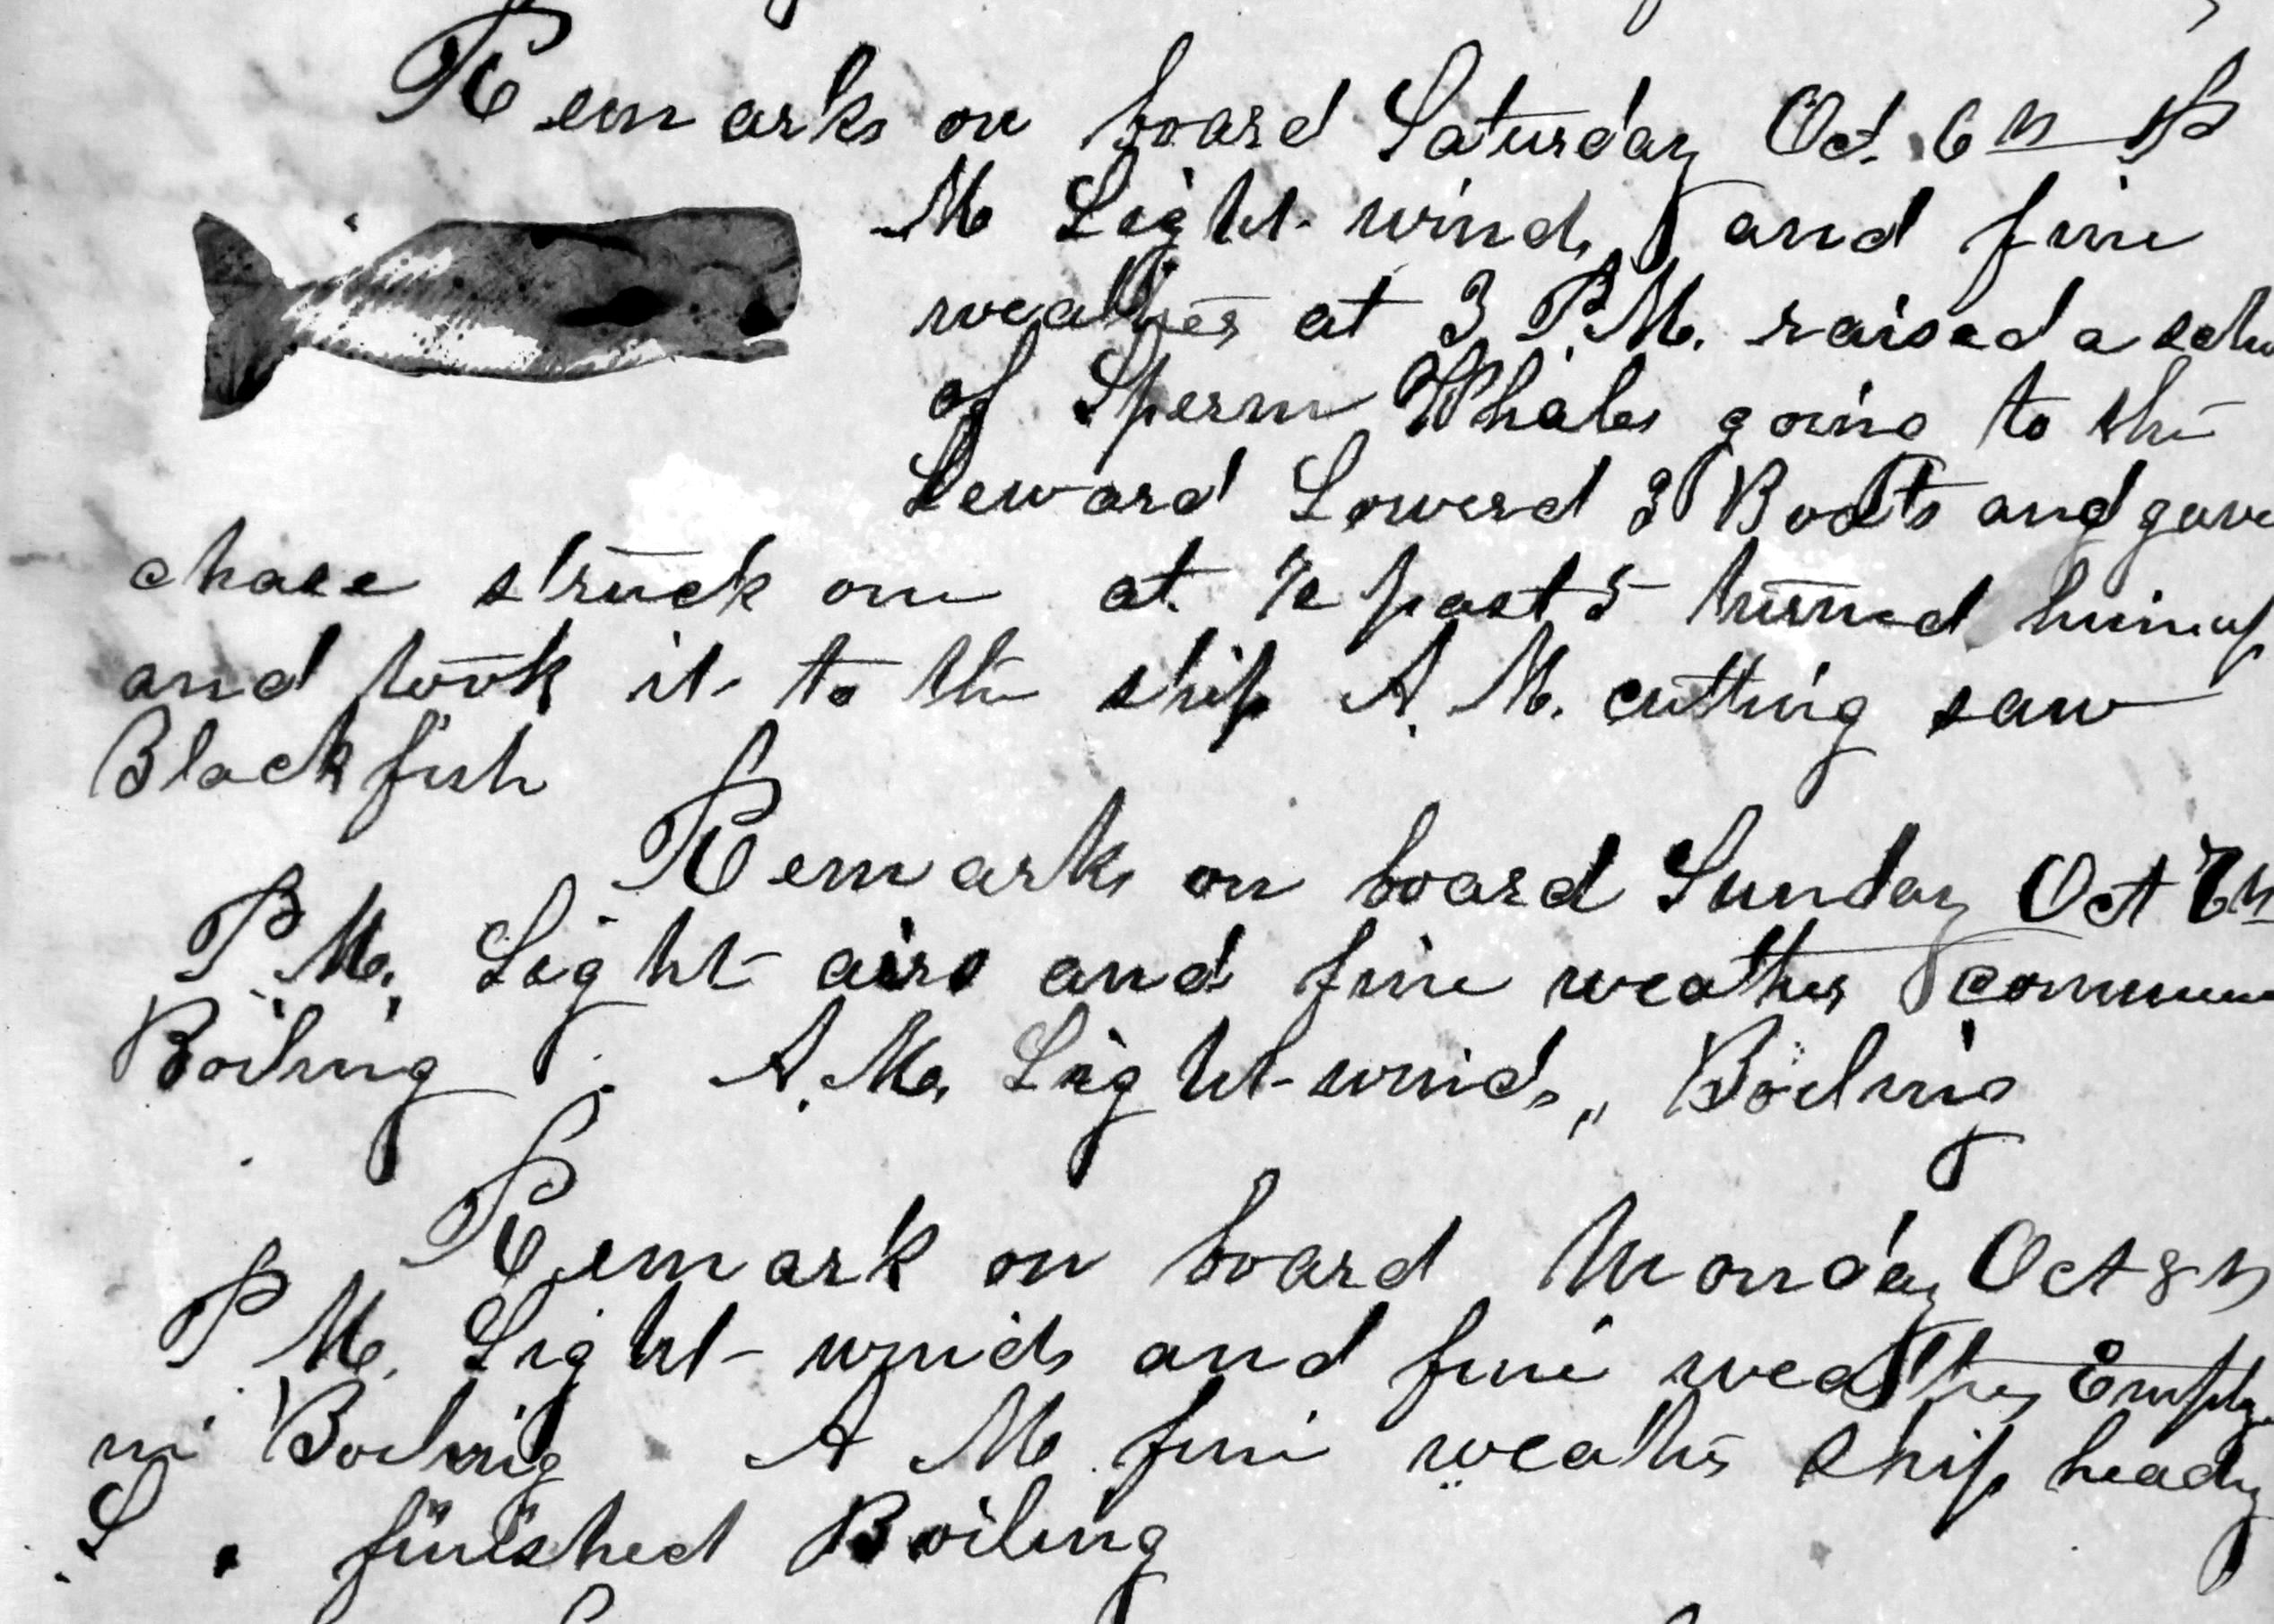 Remarks on board Saturday Oct. 6th P
M Light winds and fine
weather at 3 P.M. raised a
of Sperm Whales going to the
Leward Lowerd 3 Boats and gave
chase struck one at ½ past 5 turned him up
and took it to the ship A.M. cutting saw
Blackfish
Remarks on board Sunday Oct 7th
P.M. Light airs and fine weather
Boiling A.M. Light winds,, Boiling
Remark on board Monday Oct 8th
P M. Light winds and fine weather
in Boiling A M fine weather Ship heady
S. finished Boiling